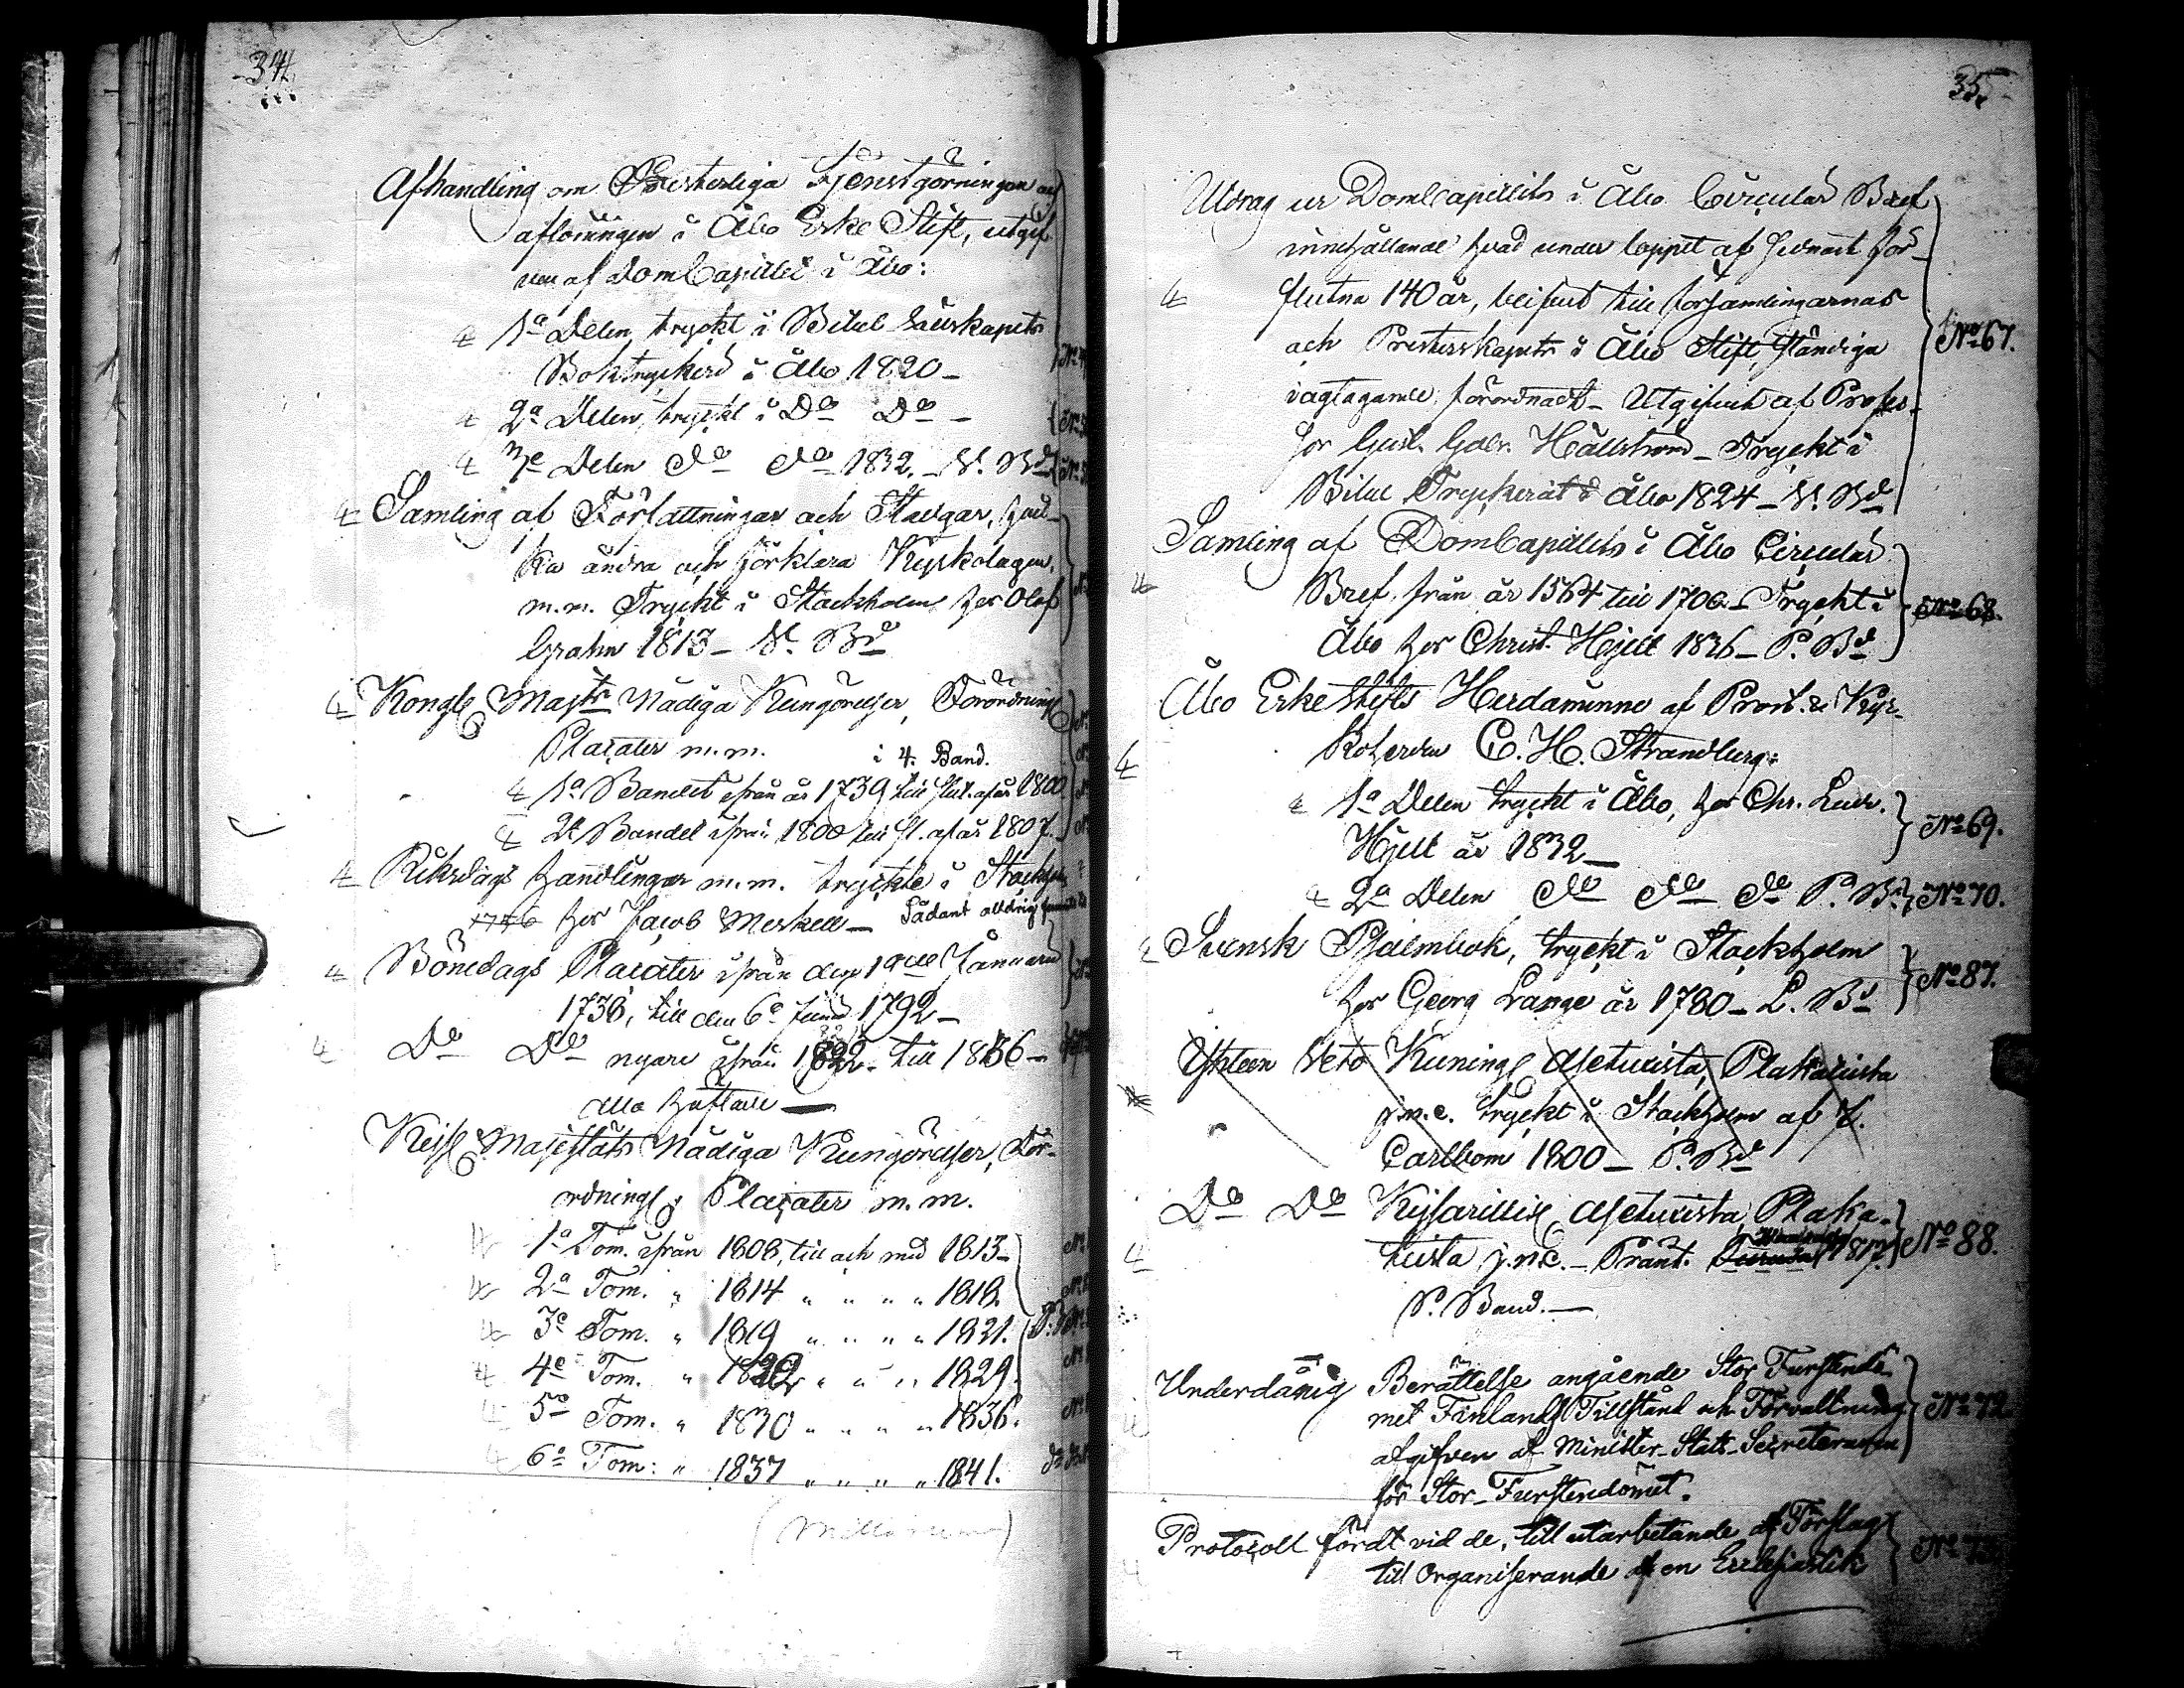 34.
Afhandling om Presterliga Tjenstgörningen och
aflöningen i Åbo Erke Stift, utgif-
ven af DomCapitlet i Åbo:
1a Delen, tryckt i Bibel Sällskapets
Boktryckeri i Åbo 1820 _
2a Delen, tryckt i Do Do _
3e Delen Do Do 1832. _
Samling af Författningar och Stadgar, hvil-
ka ändra och förklara Kyrkolagen,
m.m. Tryckt i Stockholm hos Olof
Grahn 1813 _ Bd
Kongl Majts Nådiga Kungörelser, Förordning
Placater m.m. i 4. Band.
1a Bandet ifrån år 1739 till slut. af år 1800
2t Bandet ifrån 1800 till sl. af år 1807.
Riksdags handlingar m.m. tryckte i Stockholm
hos Jacob Merkell _ Sådant alldrig
Bönedags Placater ifrån den 19de Januarii
1736, till den 6e Junii 1792 _
Do Do nyare ifrån 1822 till 1856 _
alla häftade _
Kejs Majestäts Nådiga Kungörelser, För-
ordning, Placater m.m.
1a Tom. ifrån 1808, till och med 1813 _
2a Tom. " 1814 " " " " 1818.
3e Tom. " 1819 " " " " 1821.
4e Tom. " 1822 " " " 1829.
5e Tom. " 1830 " " " " 1836.
6e Tom: " 1837 " " " " 1841.
35.
Utdrag ur DomCapitlets i Åbo Circulär Bref
innehållande hvad under loppet af sednast för-
flutna 140 år, blifvit till församlingarnas
och Presterskapets i Åbo Stift, ständiga
iagttagande, förordnadt _ Utgifvit af Profes-
sor Gust. Gabr. Hällström _ Tryckt i
Bibel Tryckeriet i Åbo 1824 _ Bd
No 67.
Samling af DomCapitlets i Åbo Circulär
Bref. från år 1564 till 1700 _ Tryckt i
Åbo hos Christ. Hjelt 1836 _ P. Bd
No 68.
Åbo Erke Stifts Herdaminne af Prost. & Kyr-
koherden C. H. Strandberg:
1a Delen tryckt i Åbo, hos Chr. Ludv.
Hjelt år 1832 _
No 69.
2a Delen Do Do Do P. Bd
No 70.
Svensk Psalmbok, tryckt i Stockholm
hos Georg Lange år 1780 _ Bd
No 87.
Yhteen Veto Kuningl Asetuxista, Plakatista
j.n.e. tryckt i Stockholm af
Carlbom 1800 _ P. Bd
Do Do Kejsarillis Asetuxista, Plaka-
tista j.n.e. _ Pränt. 1817.
P. Band. _
No 88.
Underdånig Berättelse angående Stor Furstendö-
met Finlands Tillstånd och Förvaltning
afgifven af Minister-Stats-Secreteraren
för Stor-Furstendömet.
No 72.
Protocoll fördt vid de, till utarbetande af Förslag
till Organiserande af en Ecclesiastik